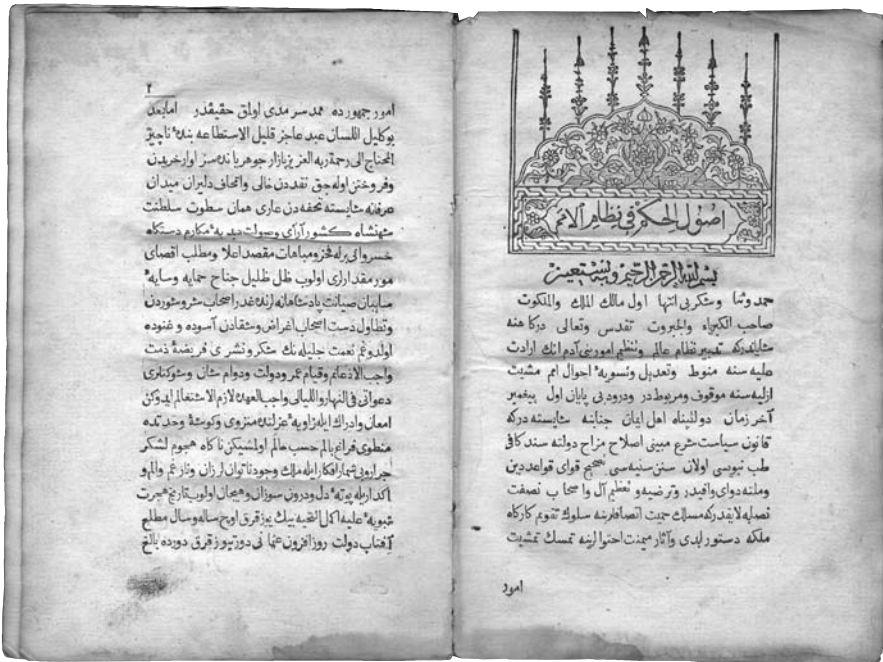 اصول الحكم فی نظام الامم
بسم الله الرحمن الرحيم وبه نستعين
حمد وثنا وشكر بی انتها اول مالك الملك والملكوت
صاحب الكبرياء والجبروت تقدس وتعالى درگاهنه
شايندركه تدبير نظام عالم وتنظيم امور بنی آدم انك ارادت
عليه سنه منوط وتعديل وتسويهٔ احوال امم مشيت
ازليه سنه موقوف ومربوطدر ودرود بی پايان اول پيغمبر
آخر زمان دولتپناه اهل ايمان جنابنه شايسته دركه
قانون سياست شرع مبينی اصلاح مزاج دولته سند كافی
طب نبوسی اولان سنن سنيه سی تصحيح قوای قواعد دين
وملته دوای وافيدر وترضيه وتعظيم آل واصحاب نصفت
نصابه لايقدركه مسلك حميت اتصافلرينه سلوك تقويم كارگاه
ملكه دستور ابدی وآثار ميمنت احتوالرينه تمسك تمشيت
امور
٢
امور جمهورده ممد سرمدی اولمق حقيقتدر امابعد
بو كليل اللسان عبد عاجز قليل الاستطاعه بندهٔ ناچيز
المحتاج الى رحمة ربه العزيز بازار جوهر يانده سزاوار خريدن
وفروختن اوله جق نقددن خالی واتحاف دلبران ميدان
عرفانه شايسته تحفه دن عاری همان سطوت سلطنت
شهنشاه كشور آرای وصولت ديدبهٔ مكارم دستگاه
خسروانی برله فخر ومباهات مقصد اعلا ومطلب اقصای
مور مقداری اولوب ظل ظليل جناح حمايه وسايهٔ
سايبان صيانت پادشاهانه لرنده غدر اصحاب شر وشوردن
وتطاول دست اصحاب اغراض وشقادن آسوده وغنوده
اولدوغم نعمت جليله نك شكر ونشری فريضهٔ ذمت
واجب الاذعانم وقيام عمر ودولت ودوام شان وشوكتلری
دعواتی فی النهار والليالی واجب العهدهٔ لازم الاشتغالم ايدوكن
امعان وادراك ايله زاويهٔ عزلتده منزوی وكوشهٔ وحدتده
منطوی فراغ بالم حسب عالم اولمشيكن ناكاه هجوم لشكر
جرار وبی شمار افكار ايله ملك وجود ناتوان لرزان ونار غم والم و
اكدار يله پوتهٔ دل ودرون سوزان وهيجان اولوب تاريخ هجرت
نبويه عليه اكمل التحيه بيك يوز قرق اوچ سالنه وسال مطلع
آفتاب دولت روز افزون عثمانی دورتيوز قرق دورده بالغ